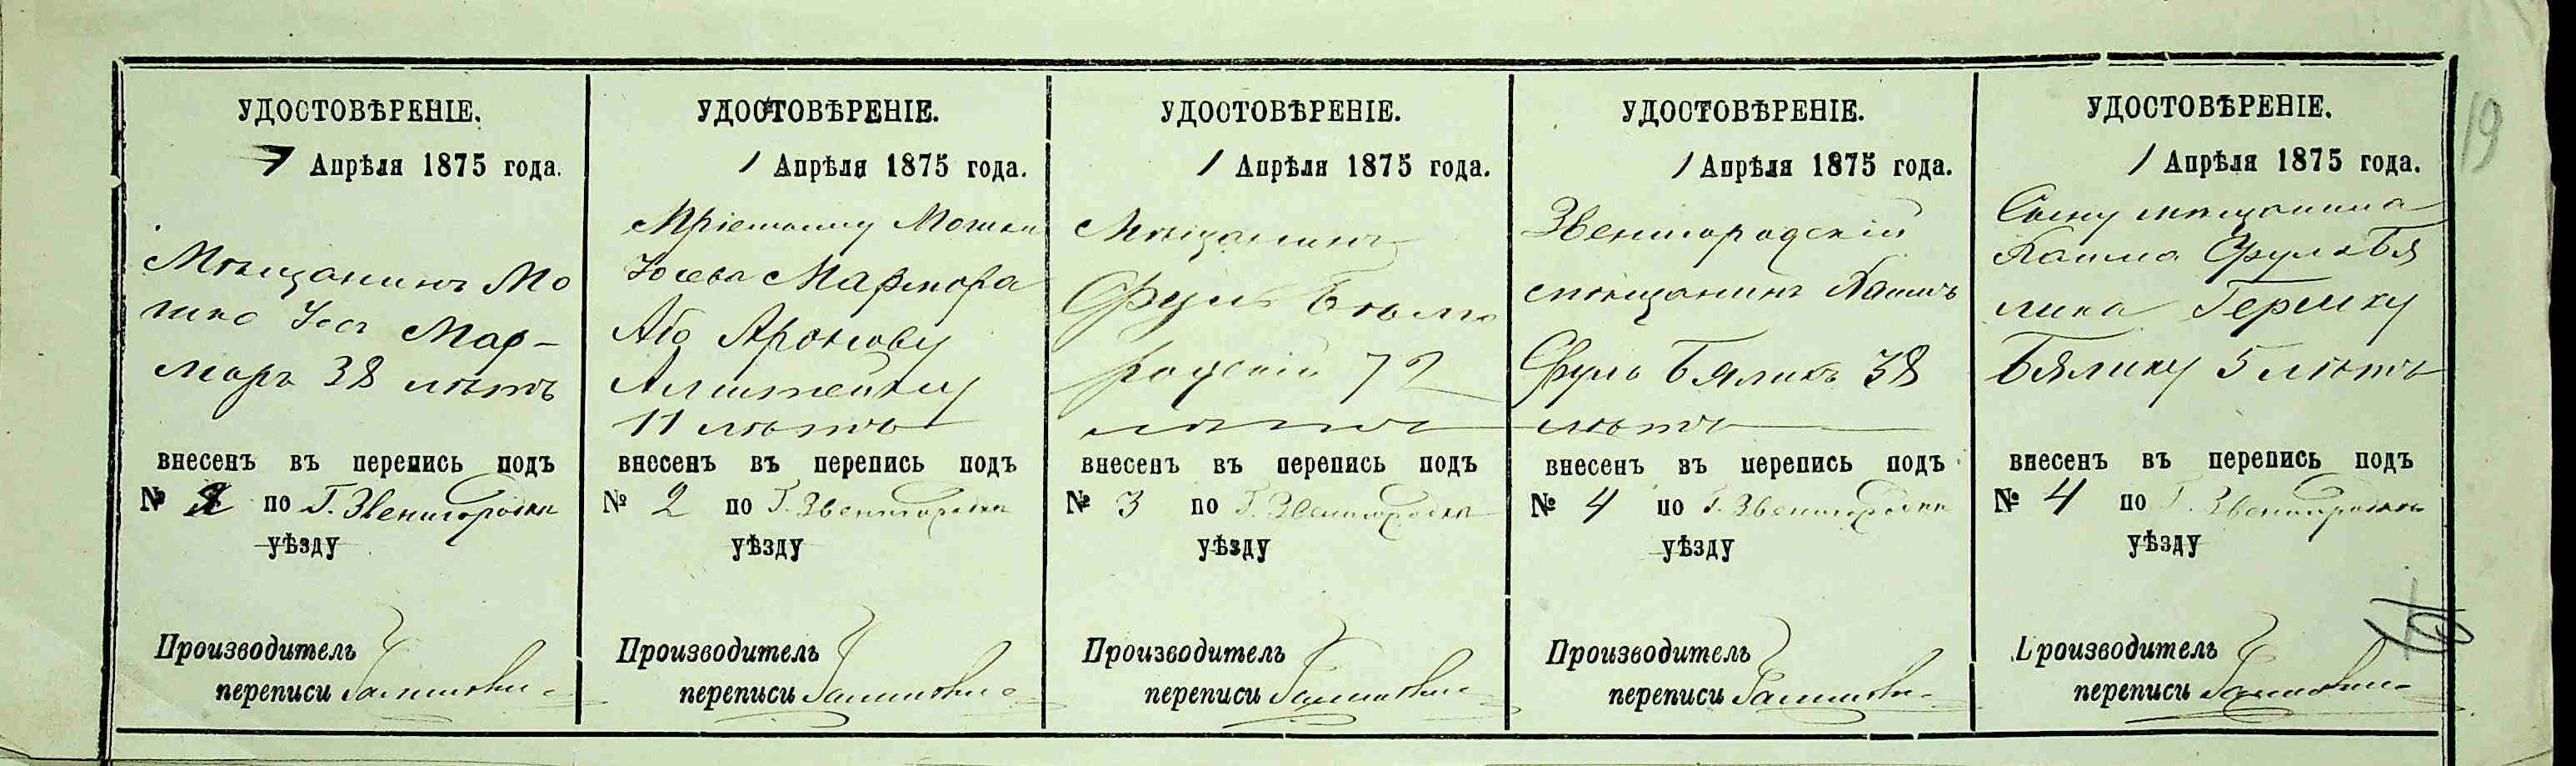 19
УДОСТОВѢРЕНІЕ.
1 Апрѣля 1875 года.
Мѣщанинъ Мо
шко Іос Мар-
моръ 38 лѣтъ
внесенъ въ перепись подъ
№ 1 по Г. Звенигородкѣ
уѣзду
Производитель
переписи
УДОСТОВѢРЕНІЕ.
1 Апрѣля 1875 года.
Пріемышу Мошки
Іосева Мармора
Або Аронову
11 лѣтъ
внесенъ въ перепись подъ
№ 2 по Г. Звенигородкѣ
уѣзду
Производитель
переписи
УДОСТОВѢРЕНІЕ.
1 Апрѣля 1875 года.
Мѣщанинъ
Сруль Бѣло
родскій 72
лѣтъ
внесенъ въ перепись подъ
№ 3 по Г. Звенигородкѣ
уѣзду
Производитель
переписи
УДОСТОВѢРЕНІЕ.
1 Апрѣля 1875 года.
Звенигородскій
мѣщанинъ
Сруль Бяликъ 38
лѣтъ
внесенъ въ перепись подъ
№ 4 по Г. Звенигородкѣ
уѣзду
Производитель
переписи
УДОСТОВѢРЕНІЕ.
1 Апрѣля 1875 года.
Сыну мѣщанина
Сруля Бя
лика Гершку
Бялику 5 лѣтъ
внесенъ въ перепись подъ
№ 4 по Г. Звенигородкѣ
уѣзду
Производитель
переписи